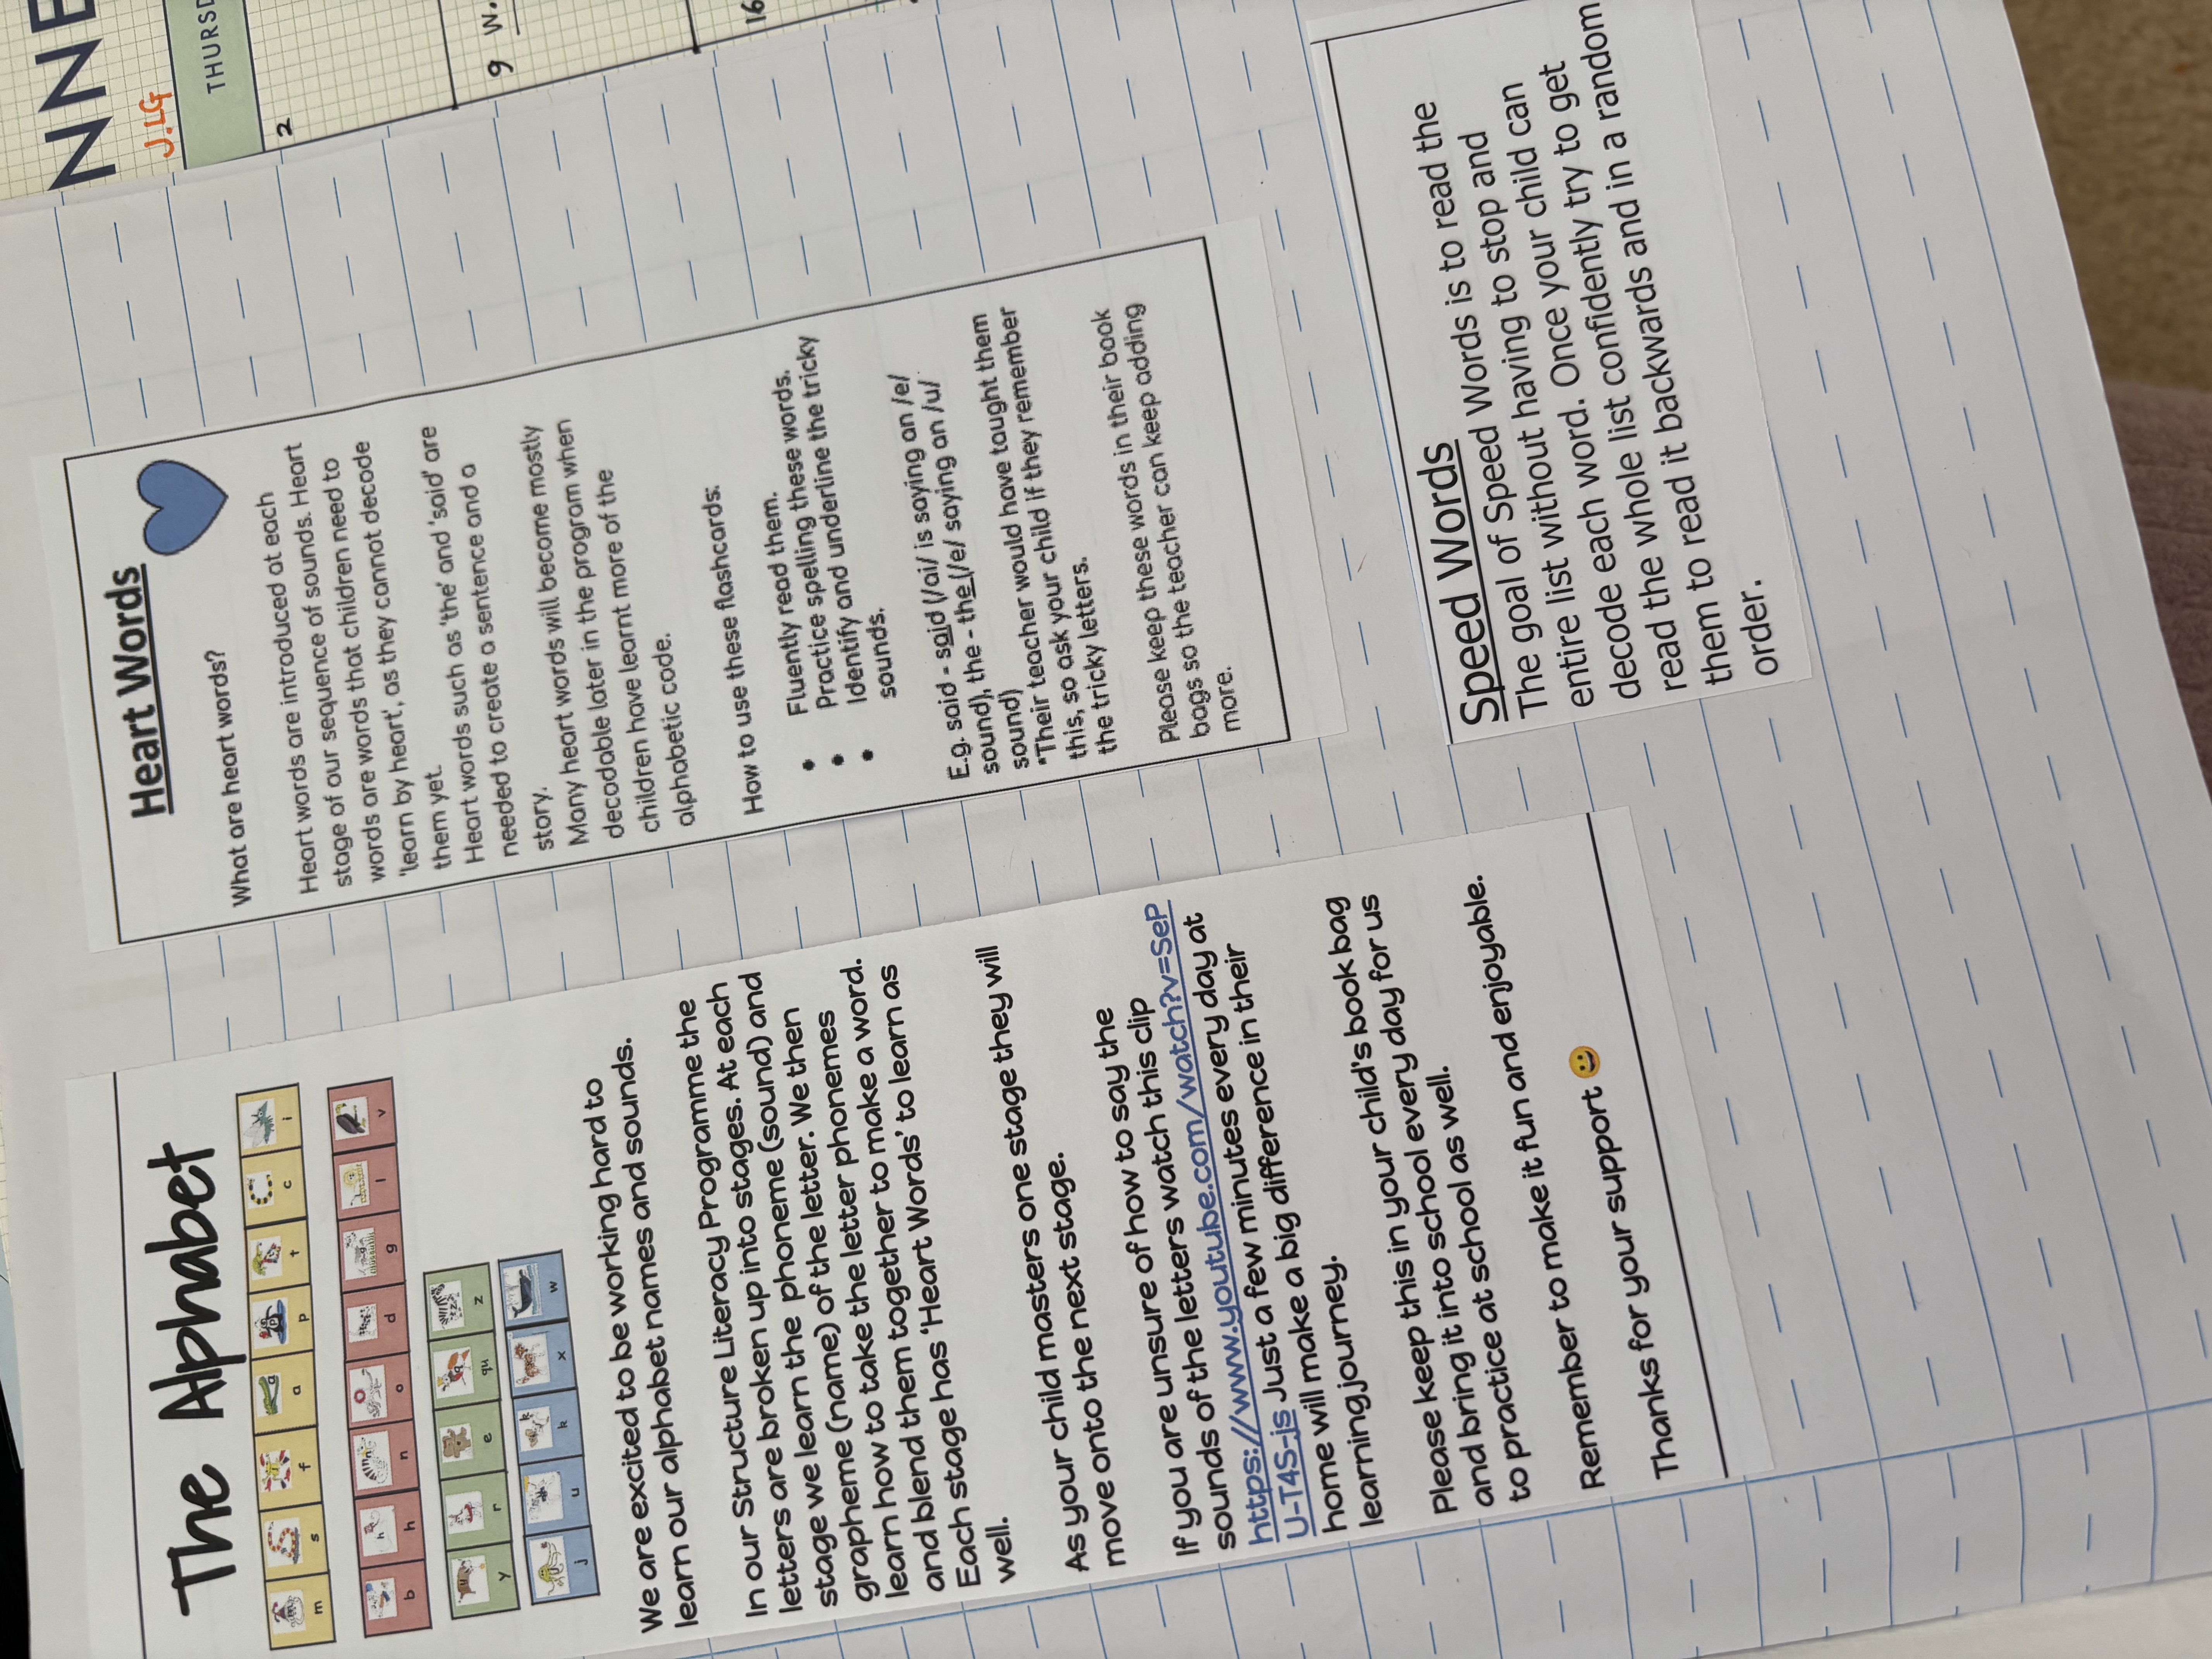 The Alphabet
m s f a p t c i
b h n o d g l v
y r e qu z
j u k x w
We are excited to be working hard to
learn our alphabet names and sounds.
In our Structure Literacy Programme the
letters are broken up into stages. At each
stage we learn the phoneme (sound) and
grapheme (name) of the letter. We then
learn how to take the letter phonemes
and blend them together to make a word.
Each stage has 'Heart Words' to learn as
well.
As your child masters one stage they will
move onto the next stage.
If you are unsure of how to say the
sounds of the letters watch this clip
https://www.youtube.com/watch?v=SeP
U-T4S-js Just a few minutes every day at
home will make a big difference in their
learning journey.
Please keep this in your child's book bag
and bring it into school every day for us
to practice at school as well.
Remember to make it fun and enjoyable.
Thanks for your support
Heart Words
What are heart words?
Heart words are introduced at each
stage of our sequence of sounds. Heart
words are words that children need to
'learn by heart', as they cannot decode
them yet.
Heart words such as 'the' and 'said' are
needed to create a sentence and a
story.
Many heart words will become mostly
decodable later in the program when
children have learnt more of the
alphabetic code.
How to use these flashcards:
• Fluently read them.
• Practice spelling these words.
• Identify and underline the tricky
sounds.
E.g. said - said (/ai/ is saying an /e/
sound), the - the (/e/ saying an /u/
sound)
*Their teacher would have taught them
this, so ask your child if they remember
the tricky letters.
Please keep these words in their book
bags so the teacher can keep adding
more.
Speed Words
The goal of Speed Words is to read the
entire list without having to stop and
decode each word. Once your child can
read the whole list confidently try to get
them to read it backwards and in a random
order.
NNE
J.LG
THURSD
2
9 W.
16